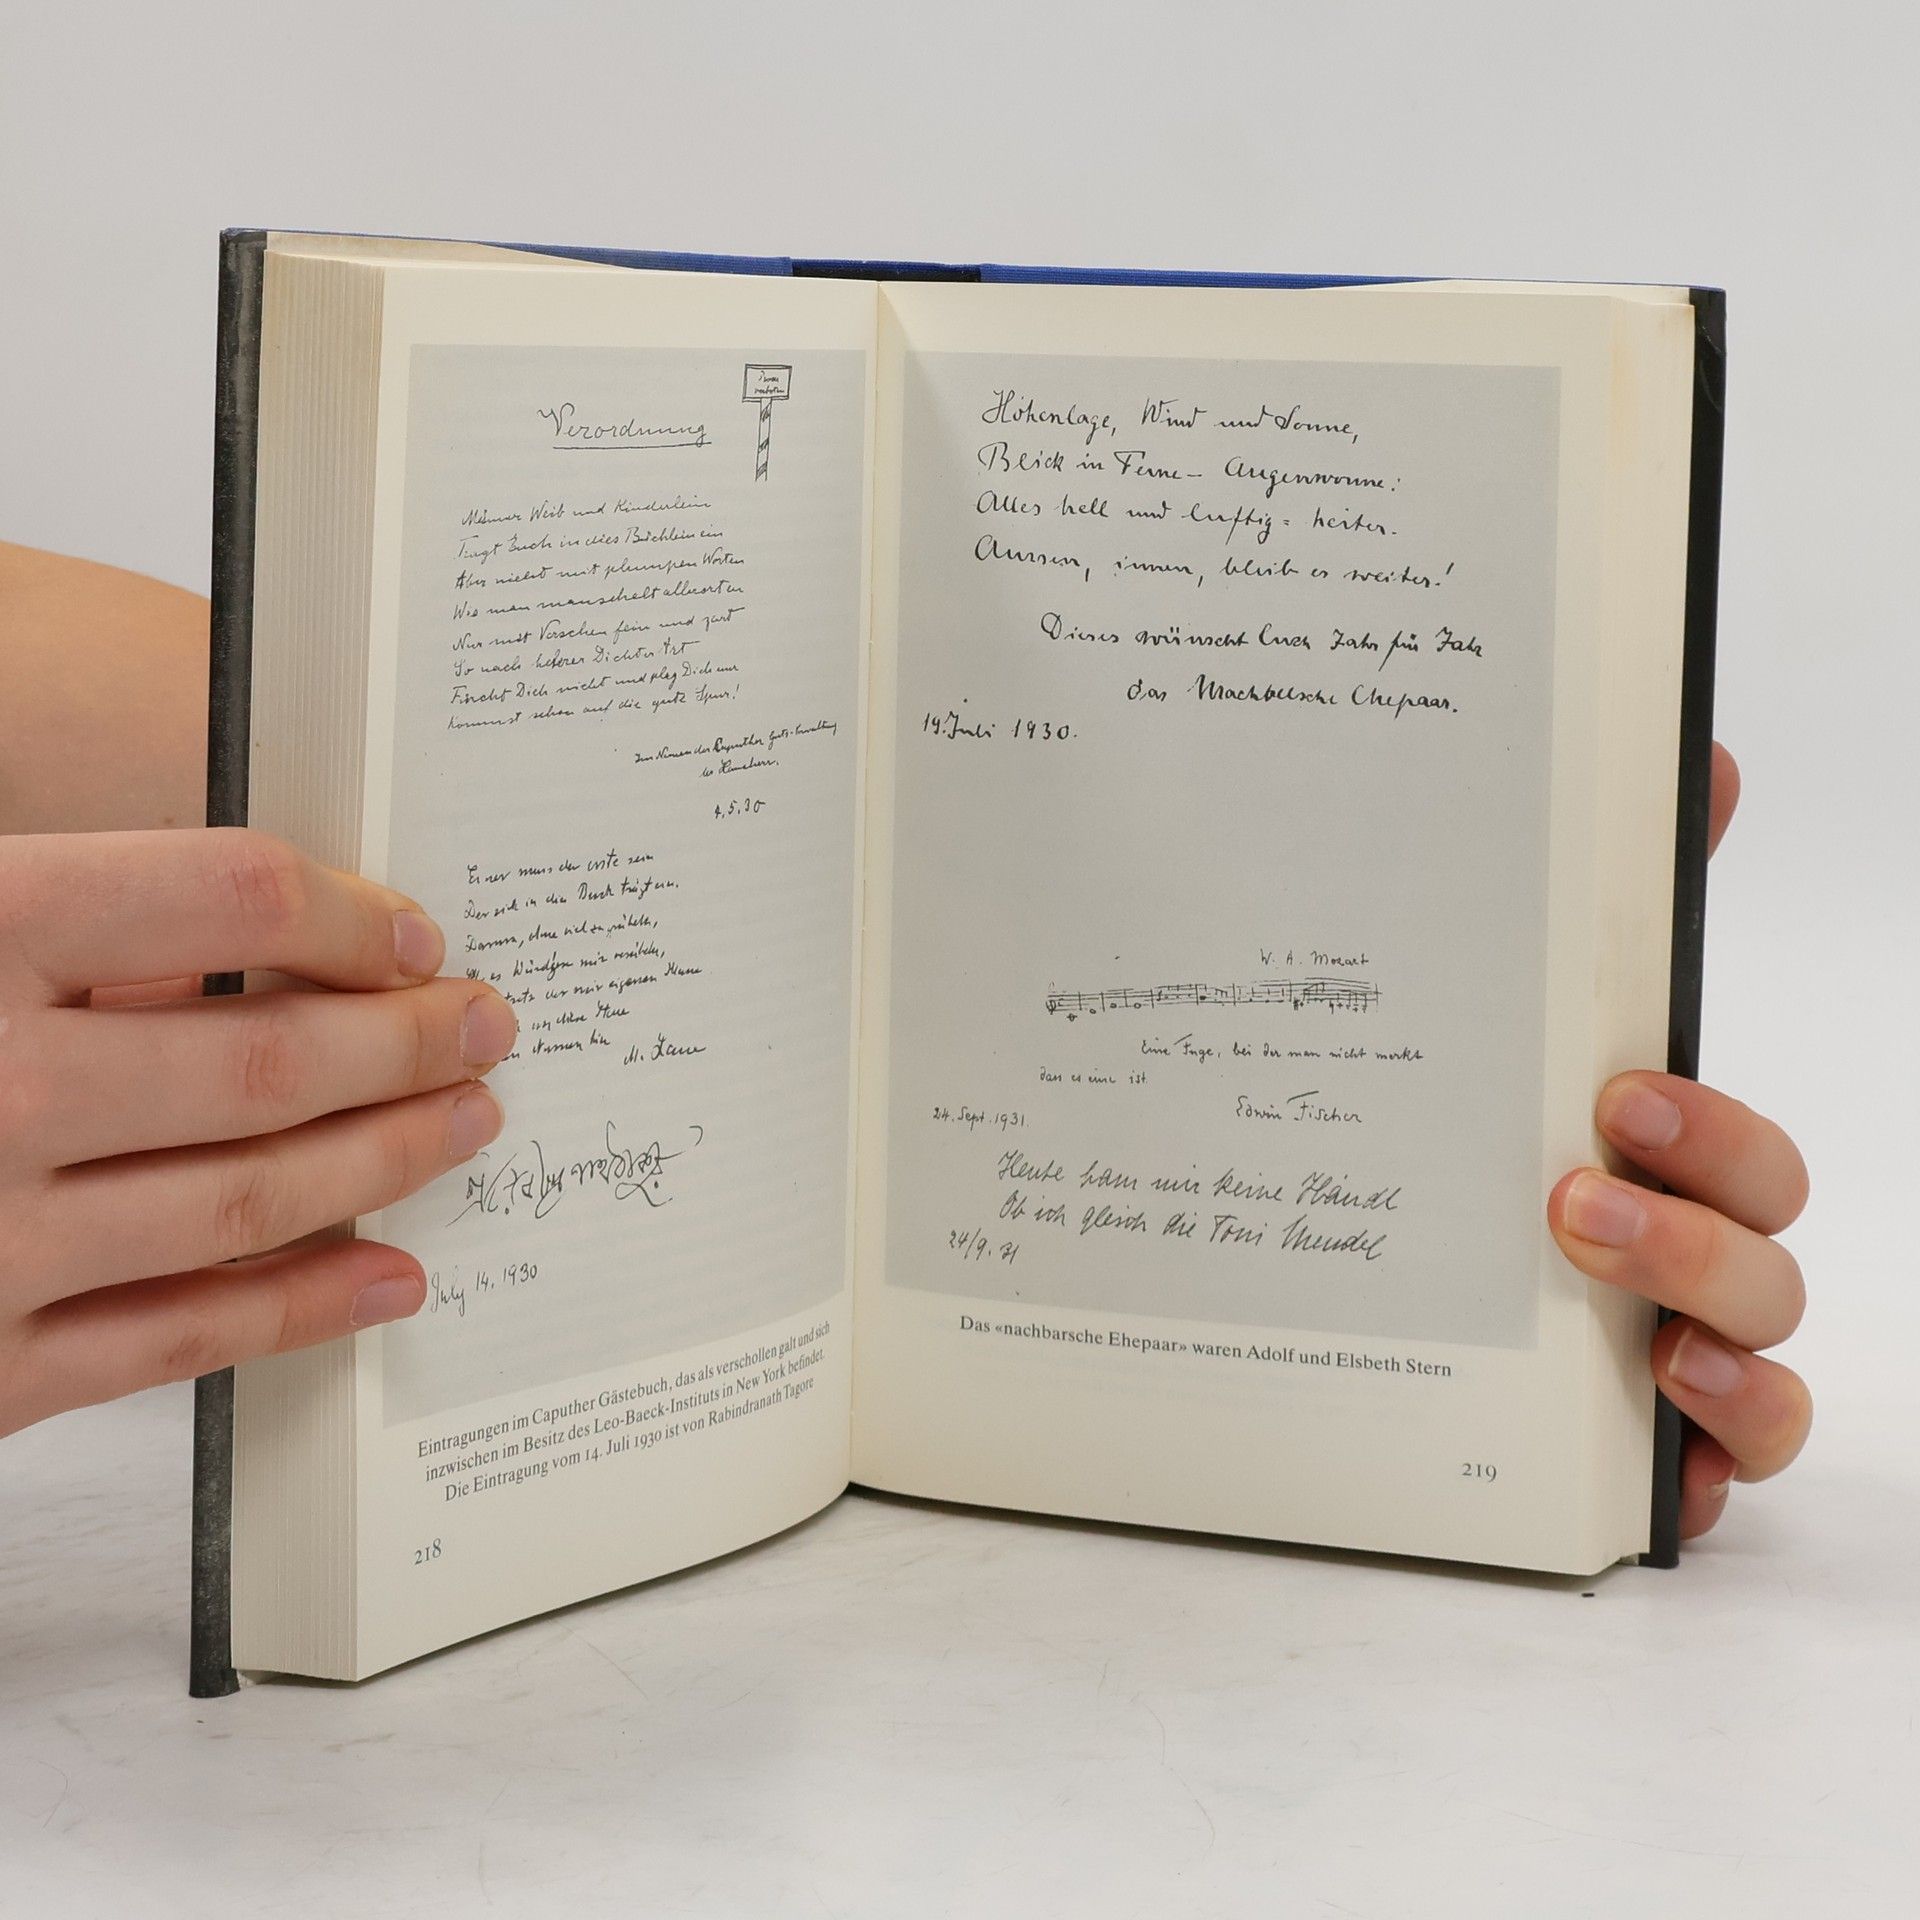 Verordnung
Männer Weib und Kinderlein
Tragt Euch in dies Büchlein ein
Aber nicht mit plumpen Worten
Wie man manschelt allerorten
Nur mit Verschen fein und zart
So nach Dichter Art
Fürcht Dich nicht und plag Dich nur
Kommst schon auf die gute Spur!
Im Namen der Caputher Guts-Verwaltung
der Hausherr.
4.5.30
Einer muss der erste sein
Der sich in dies Buch trägt ein.
Darum, ohne viel zu grübeln,
es mir
trotz der mir eigenen
M.
July 14, 1930
Eintragungen im Caputher Gästebuch, das als verschollen galt und sich
inzwischen im Besitz des Leo-Baeck-Instituts in New York befindet.
Die Eintragung vom 14. Juli 1930 ist von Rabindranath Tagore
218
Höhenlage, Wind und Sonne,
Blick in Ferne – Augenwonne:
Alles hell und luftig = heiter.
Aussen, innen, bleib es weiter!
Dieses wünscht Euch Jahr für Jahr
das Nachbarsche Ehepaar.
19. Juli 1930.
W. A. Mozart
Eine Fuge, bei der man nicht merkt
dass es eine ist.
24. Sept. 1931.
Edwin Fischer
Heute ham mir keine Händl
Ob ich gleich die Toni Mendel
24/9. 31
Das «nachbarsche Ehepaar» waren Adolf und Elsbeth Stern
219